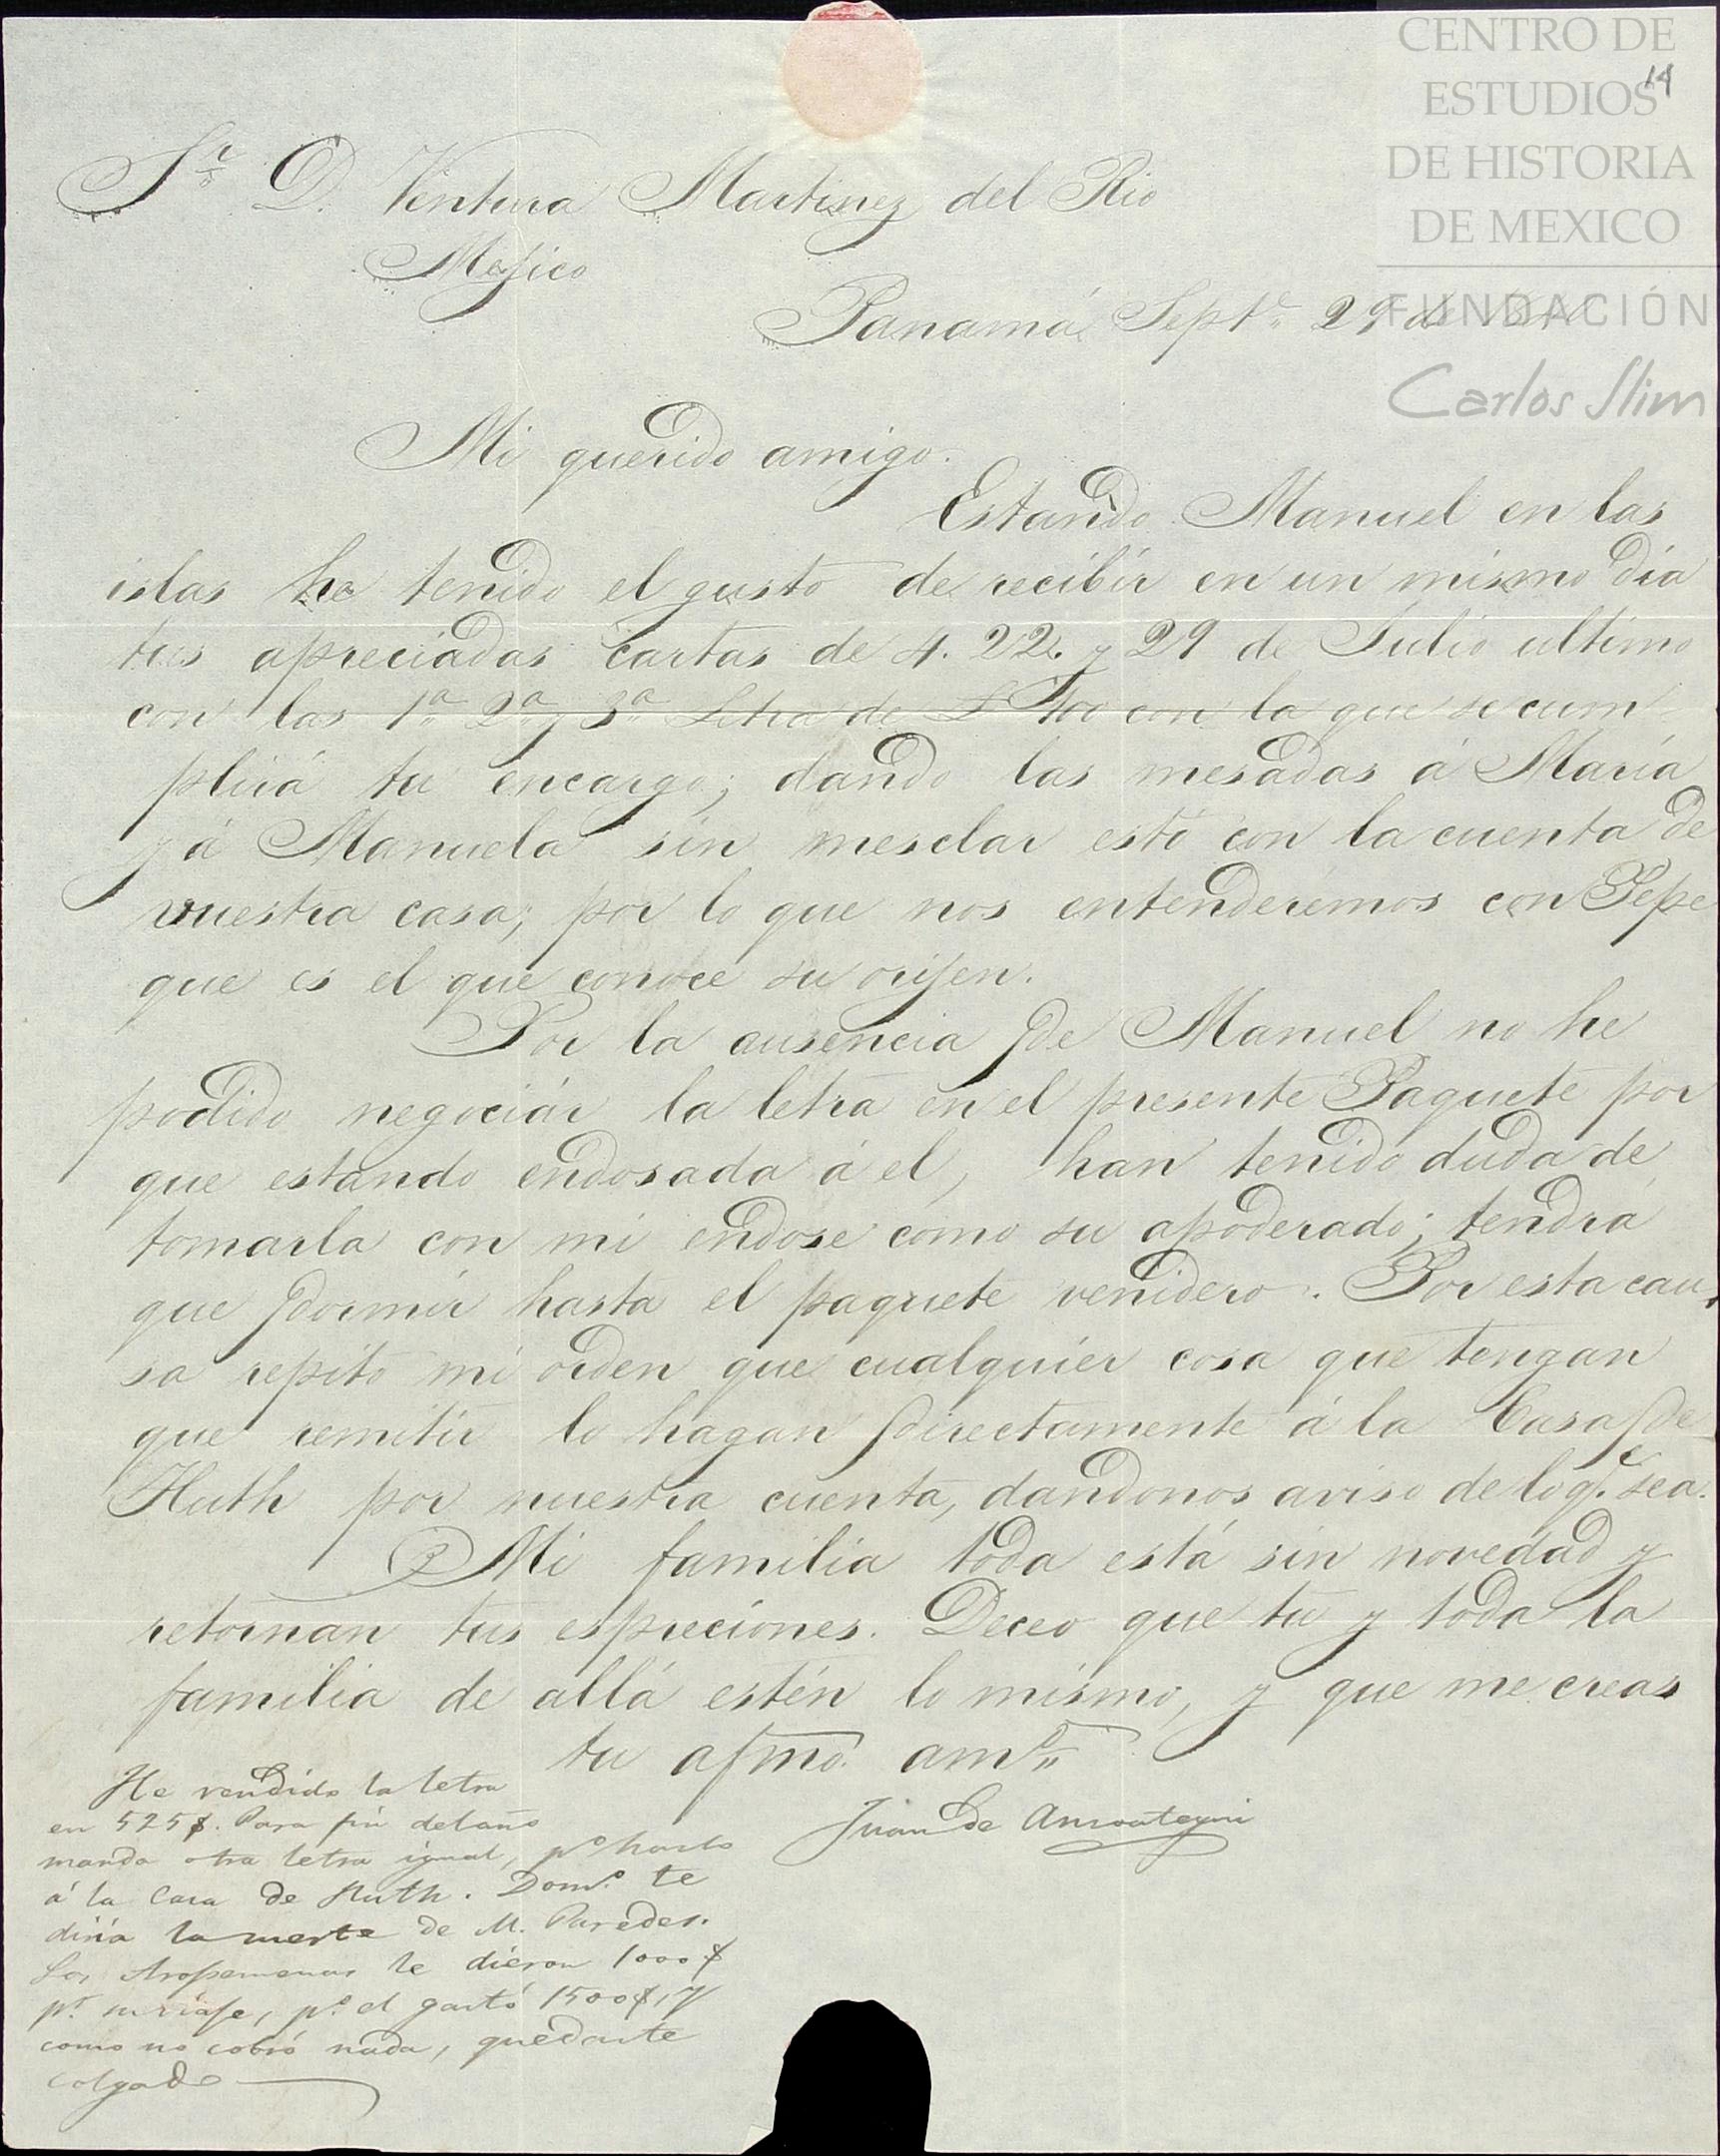 CENTRO DE
ESTUDIOS
DE HISTORIA
DE MEXICO
FUNDACIÓN
Carlos Slim
14
Sr. D. Ventura Martinez del Rio
Mejico
Panamá Septe. 29 de
Mi querido amigo.
Estando Manuel en las
islas he tenido el gusto de recibir en un mismo dia
tus apreciadas cartas de 4. 22. y 29 de Julio ultimo
con las 1a. 2a. y 3a. Letra de £ 100 con la que se cum-
plirá tu encargo; dando las mesadas á María
y á Manuela sin mesclar esto con la cuenta de
vuestra casa; por lo que nos entenderemos con Pepe
que es el que conoce su orijen.
Por la ausencia de Manuel no he
podido negociar la letra en el presente Paquete por
que estando endosada á el, han tenido duda de
tomarla con mi endose como su apoderado; tendrá
que dormir hasta el paquete venidero. Por esta cau,
sa repito mi orden que cualquier cosa que tengan
que remitir lo hagan directamente á la Casa de
Huth por nuestra cuenta, dandonos aviso de lo qe. sea.
Mi familia toda está sin novedad y
retornan tus espreciones. Deceo que tu y toda la
familia de allá estén lo mismo, y que me creas
tu afmo. amo.
Juan de Ansoategui
He vendido la letra
en 525$. Para fin del año
manda otra letra igual, po. hazlo
á la Casa de Huth. Domo. te
diria la muerte de M. Paredes.
Los Arosemenas le dieron 1000$
pr. su viaje, po. el gastó 1500$, y
como no cobró nada, quedaste
colgado